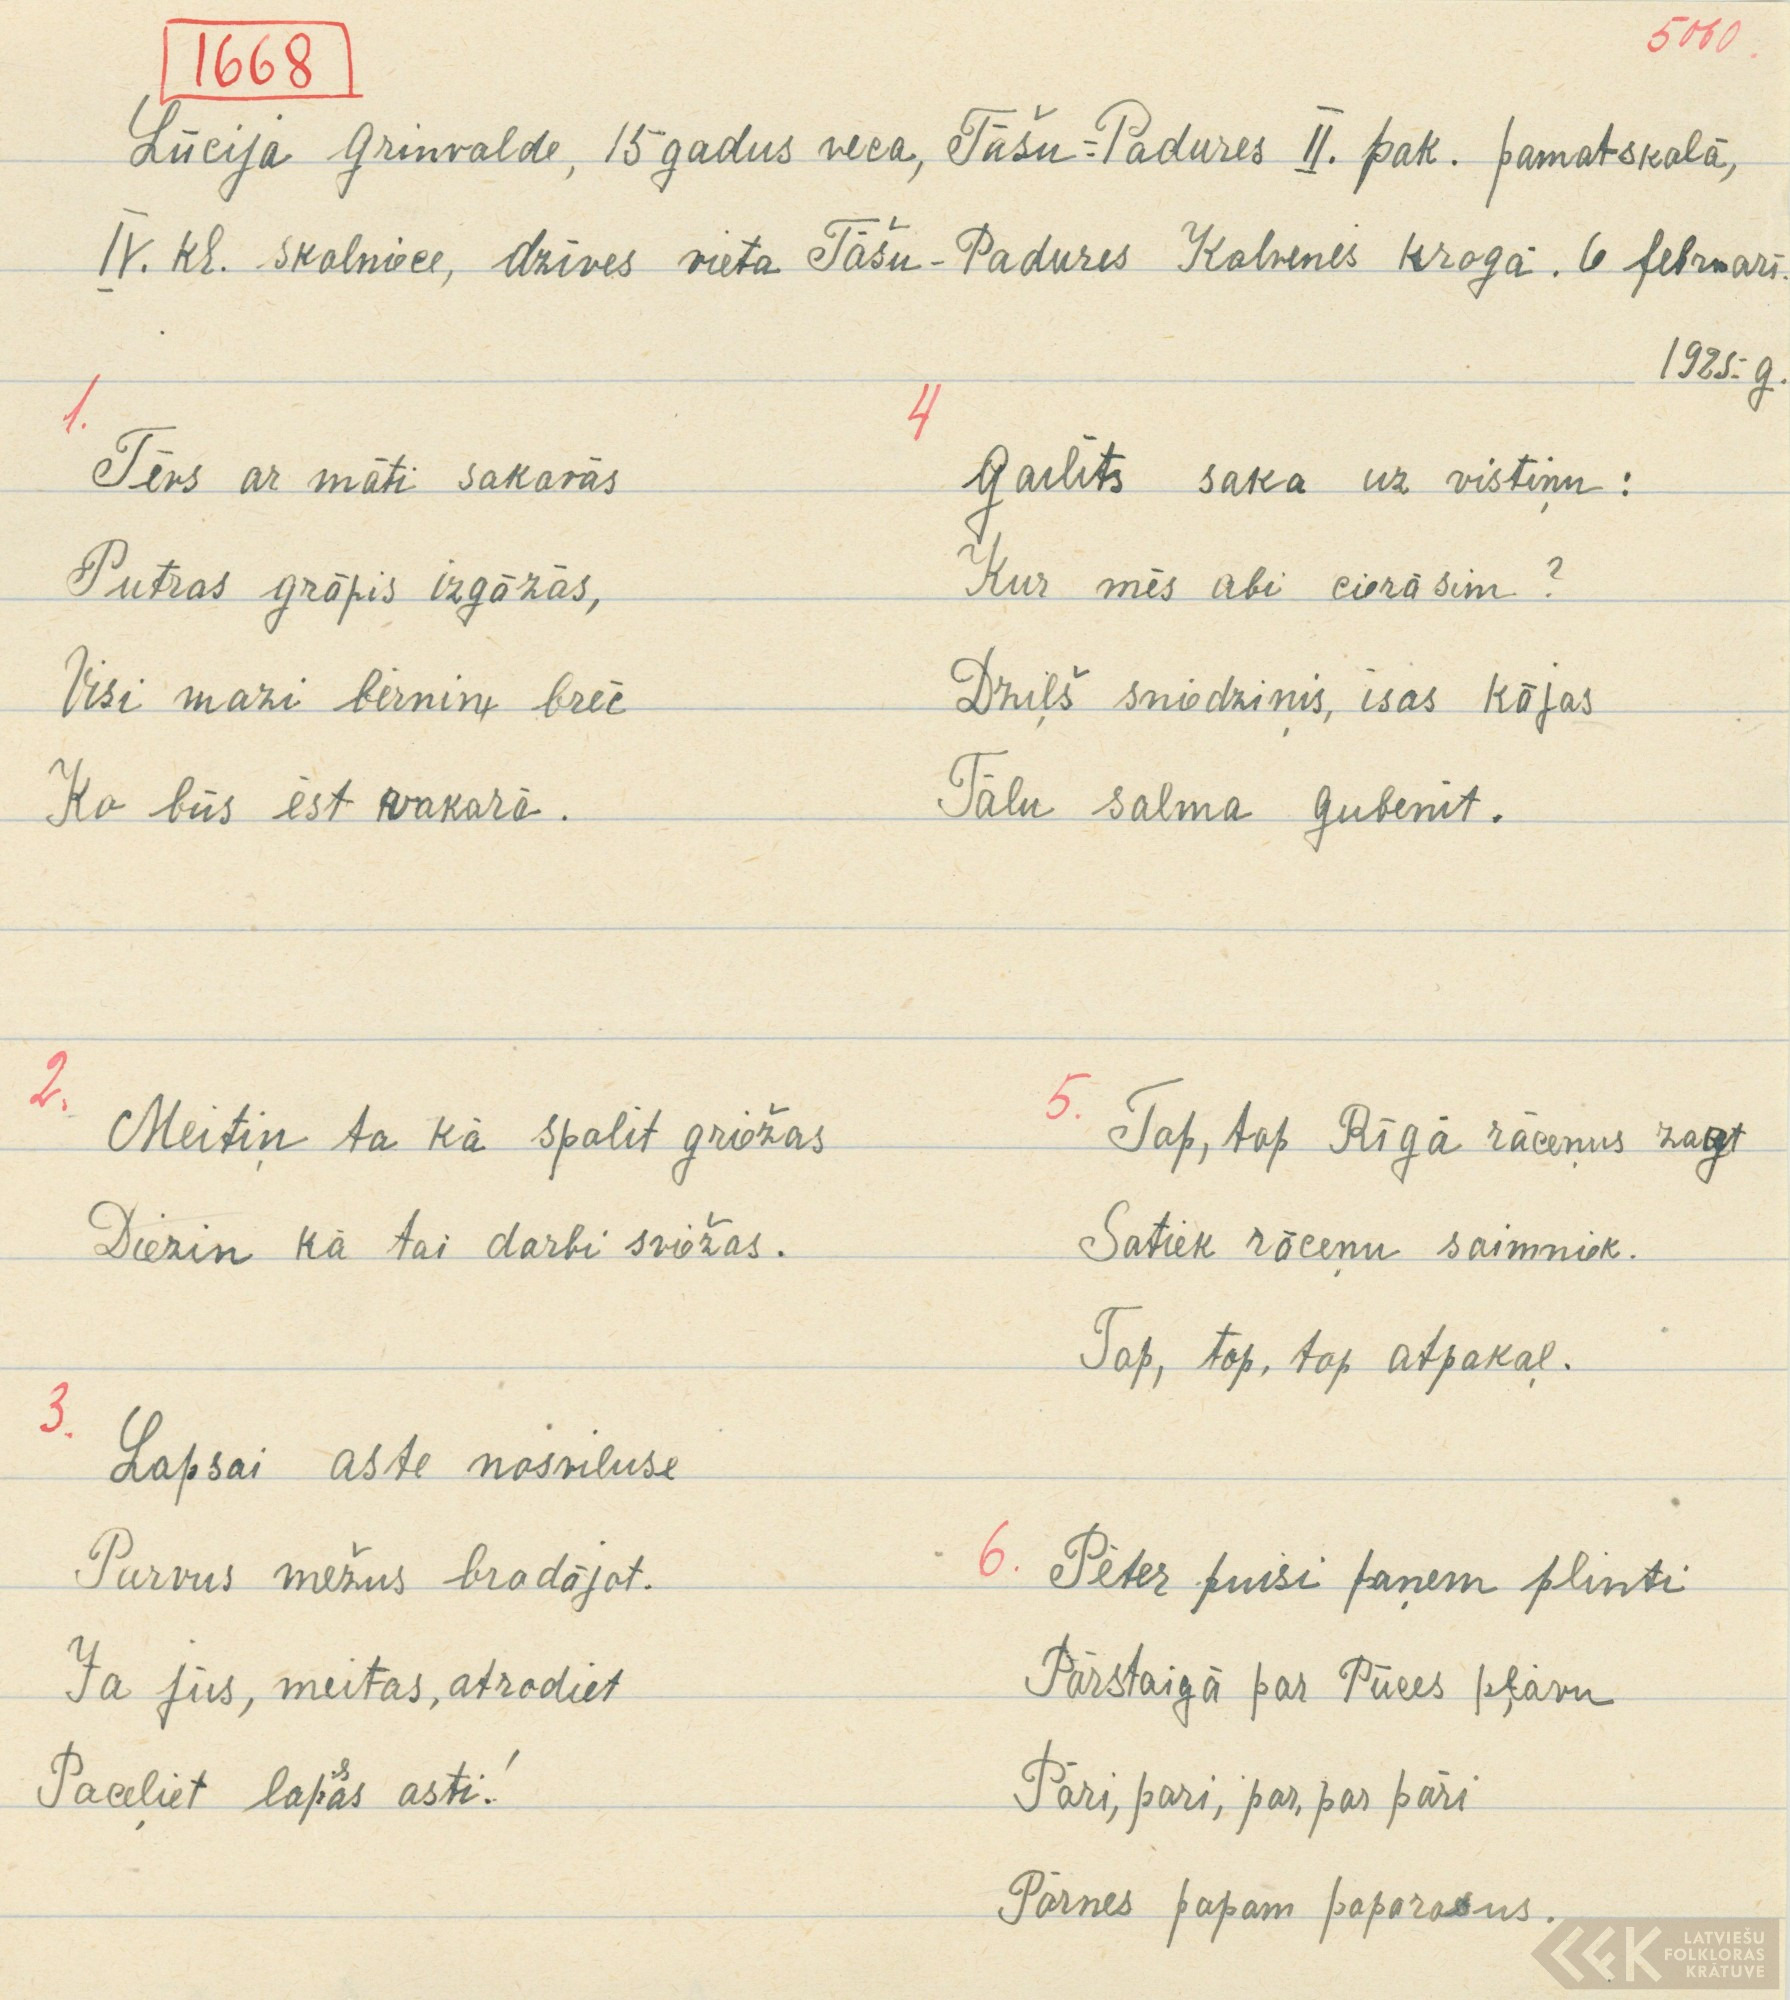 1668
5060.
Lūcija Grinvalde, 15 gadus veca, Tāšu-Padures II. pak. pamatskolā,
IV. kl. skolniece, dzīves vieta Tāšu-Padures Kalvenes krogā. 6 februarī.
1925. g.
1.
Tēvs ar māti sakavās
Putras grāpis izgāzās,
Visi mazi bērniņ brēc
Ko būs ēst vakarā.
2.
Meitiņ ta kā spalit griežas
Diezin kā tai darbi sviežas.
3.
Lapsai aste nosviluse
Purvus mežus bradājot.
Ja jūs, meitas, atrodiet
Paceļiet lapsas asti!
4
Gailīts saka uz vistiņu:
Kur mēs abi cierāsim?
Dziļš sniedziņis, isas kājas
Tālu salma gubenīt.
5.
Tap, tap Rīgā rāceņus zagt
Satiek rāceņu saimniek.
Tap, tap, tap atpakaļ.
6.
Pēter puisi paņem plinti
Pārstaigā par Pūces pļavu
Pāri, pari, par, par pāri
Pārnes papam paparasus.
LATVIEŠU
FOLKLORAS
KRĀTUVE